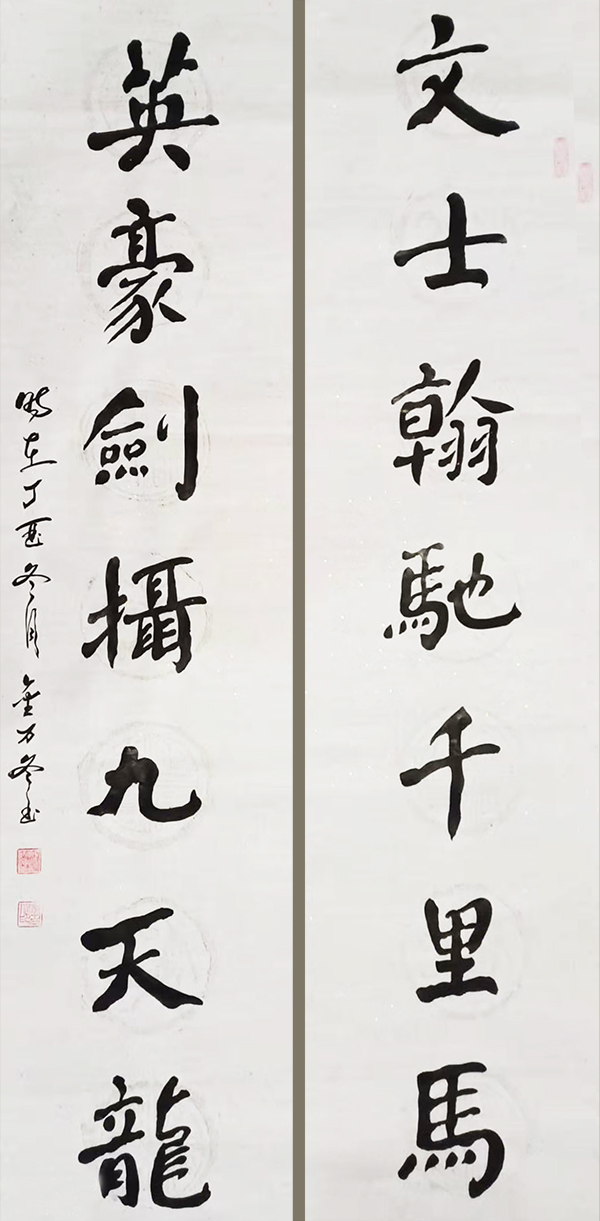 文士翰馳千里馬
英豪劍攝九天龍
時在丁酉冬月金万冬书